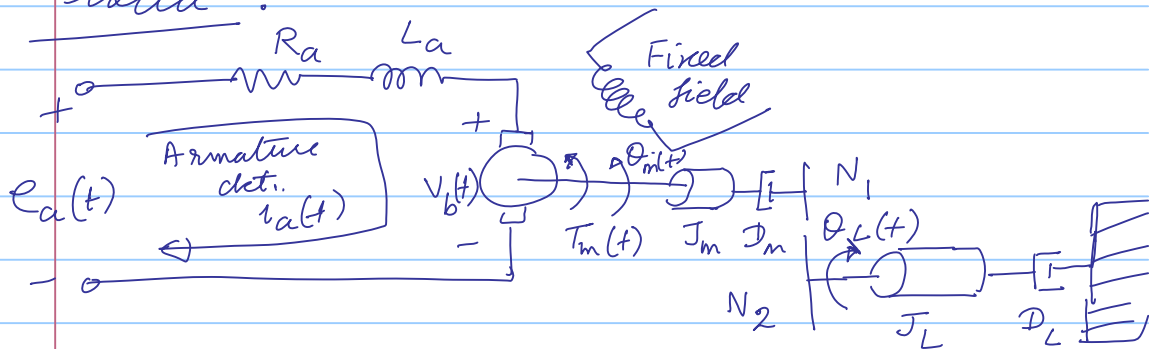 Ra La
Fixed
field
+
+
Armature
ckt..
ia(t)
ea(t)
Vb(t)
θm(t)
N1
-
Tm(t) Jm Dm
θL(t)
-
N2
JL
DL